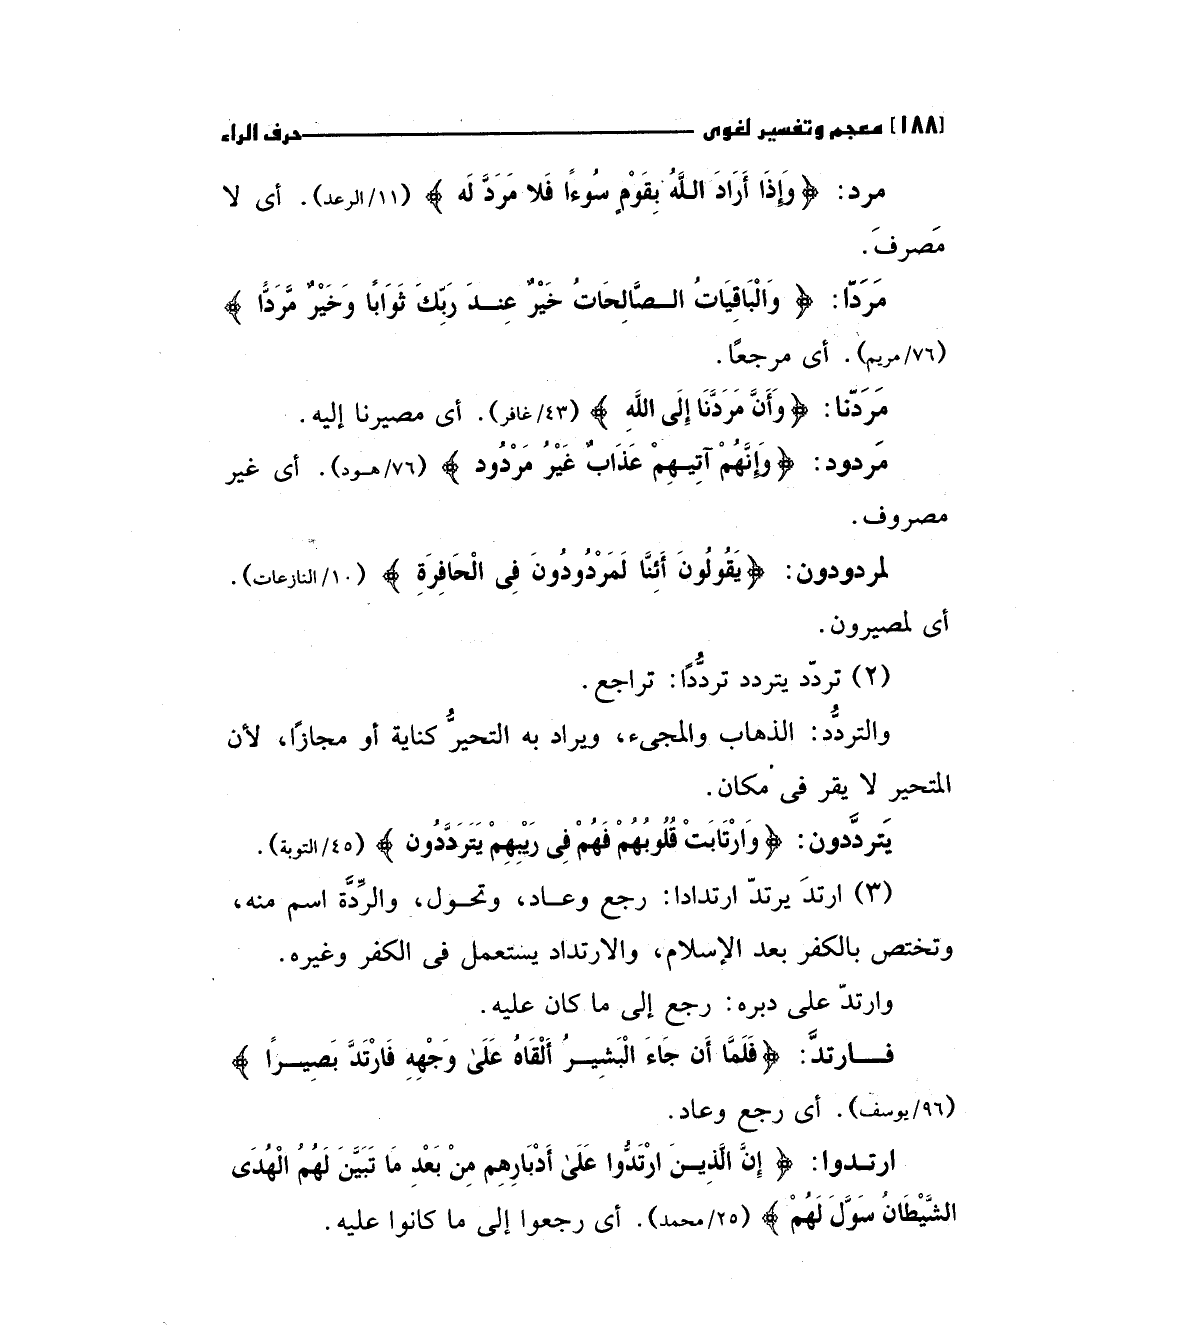 [١٨٨] معجم وتفسير لغوى ــــــــــــــ حرف الراء
مرد: ﴿وَإِذَا أَرَادَ اللَّهُ بِقَوْمٍ سُوءًا فَلا مَرَدَّ لَه﴾ (١١/الرعد). أى لا
مَصرفَ.
مَرَدّا: ﴿وَالْبَاقِيَاتُ الصَّالِحَاتُ خَيْرٌ عِندَ رَبِّكَ ثَوَابًا وَخَيْرٌ مَّرَدًّا﴾
(٧٦/مريم). أى مرجعًا.
مَرَدّنا: ﴿وَأَنَّ مَرَدَّنَا إِلَى اللَّهِ﴾ (٤٣/غافر). أى مصيرنا إليه.
مَردود: ﴿وَإِنَّهُمْ آتِيهِمْ عَذَابٌ غَيْرُ مَرْدُود﴾ (٧٦/هود). أى غير
مصروف.
لمردودون: ﴿يَقُولُونَ أَئِنَّا لَمَرْدُودُونَ فِى الْحَافِرَةِ﴾ (١٠/النازعات).
أى لمصيرون.
(٢) تردّد يتردد تردُّدًا: تراجع.
والتردُّد: الذهاب والمجىء، ويراد به التحيرُّ كناية أو مجازًا، لأن
المتحير لا يقر فى مكان.
يَتردَّدون: ﴿وَارْتَابَتْ قُلُوبُهُمْ فَهُمْ فِى رَيْبِهِمْ يَتَرَدَّدُون﴾ (٤٥/التوبة).
(٣) ارتدَ يرتدّ ارتدادا: رجع وعاد، وتحول، والرِّدَّة اسم منه،
وتختص بالكفر بعد الإسلام، والارتداد يستعمل فى الكفر وغيره.
وارتدّ على دبره: رجع إلى ما كان عليه.
فارتدَّ: ﴿فَلَمَّا أَن جَاءَ الْبَشِيرُ أَلْقَاهُ عَلَىٰ وَجْهِهِ فَارْتَدَّ بَصِيرًا﴾
(٩٦/يوسف). أى رجع وعاد.
ارتدوا: ﴿إِنَّ الَّذِينَ ارْتَدُّوا عَلَىٰ أَدْبَارِهِم مِنْ بَعْدِ مَا تَبَيَّنَ لَهُمُ الْهُدَى
الشَّيْطَانُ سَوَّلَ لَهُمْ﴾ (٢٥/محمد). أى رجعوا إلى ما كانوا عليه.